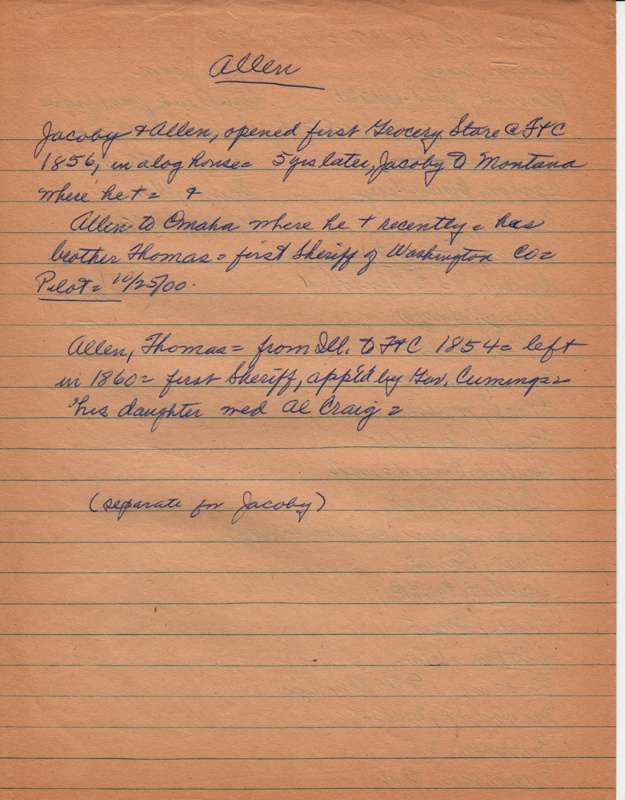 Allen
Jacoby & Allen, opened first Grocery Store @ FtC
1856, in a log house = 5 yrs later, Jacoby to Montana
where he + = &
Allen to Omaha where he + recently = has
brother Thomas = first Sheriff of Washington Co =
Pilot = 10/25/00.
Allen, Thomas = from Ill. to FtC 1854 = left
in 1860 = first Sheriff, appt'd by Gov. Cumings =
his daughter med Al Craig =
(separate for Jacoby)